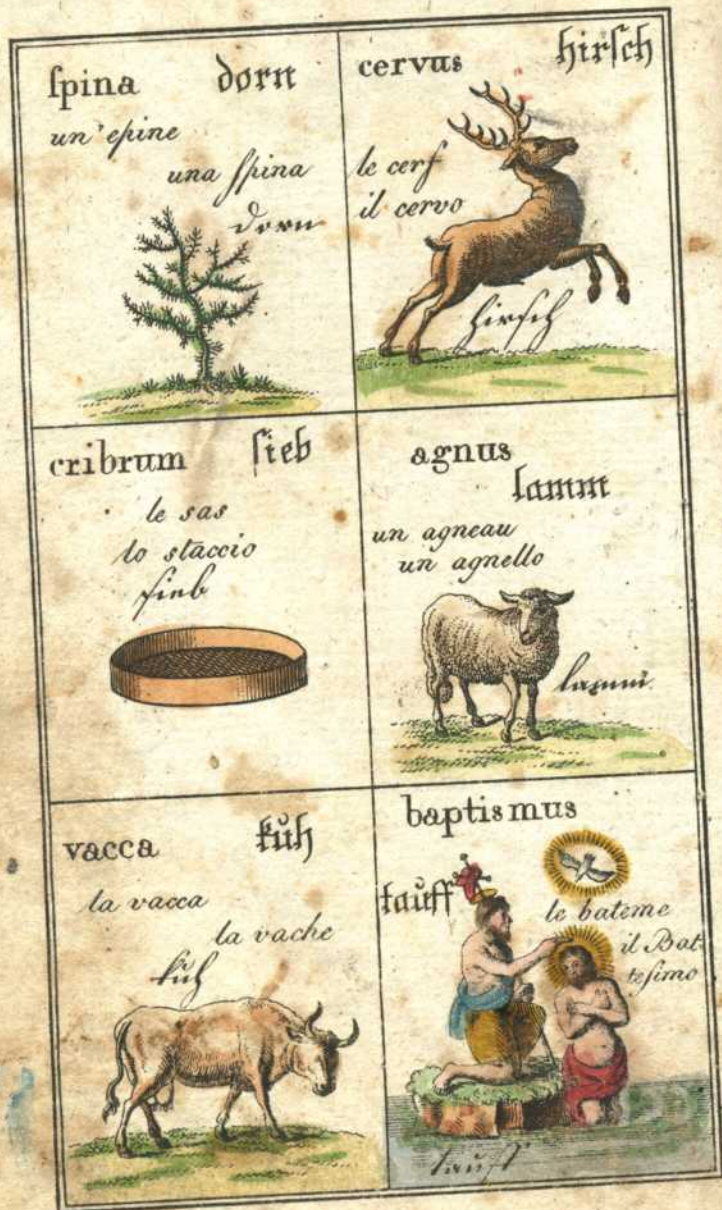 ſpina dorn
un'epine
una ſpina
dorn
cervus hirſch
le cerf
il cervo
hirſch
cribrum ſieb
le sas
lo staccio
ſieb
agnus
lamm
un agneau
un agnello
lamm
vacca kŭh
la vacca
la vache
kŭh
baptismus
tauff
le bateme
il Bat-
teſimo
tauff